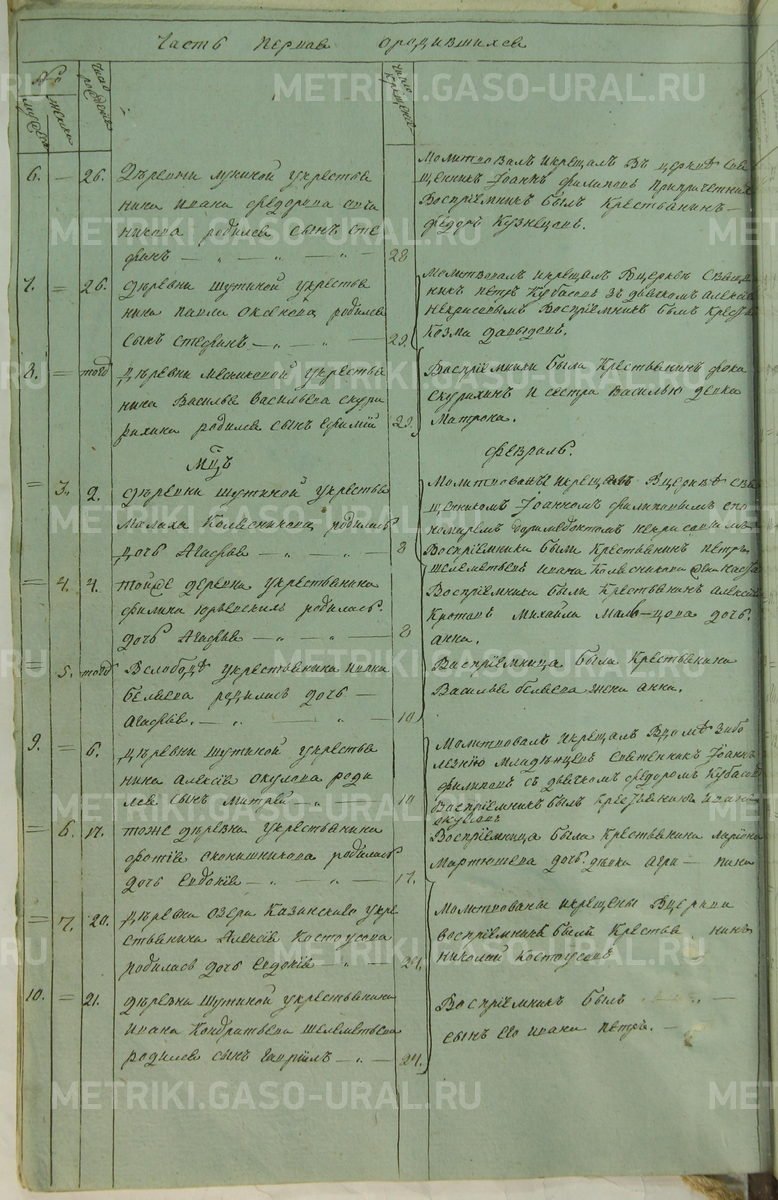 Часть первая о родившихся
№
мужеска
женска
число рождения
число крещения
6. — 26. Деревни Лукиной укрестья
нина Ивана Федорова
родился сынъ Сте
фанъ — „ — „ — „ — 28
Молитвовалъ икрещалъ Въ церкве Свя
щенникъ Іоаннъ Филиповъ
Воспріемникъ былъ Крестьянинъ —
Федоръ Кузнецовъ.
7. = 26. Деревни Шутиной укрестья
нина Павла родился
сынъ Стефанъ — „ — 29.
Молитвовалъ икрещалъ Вцеркве Свяще
нникъ Петръ Кубасовъ зъ дьячкомъ Алексіе
Некрасовымъ Воспріемникъ былъ
Козма Давыдовъ.
8. = тогож Деревни укрестья
нина Василья Васильева Скури
рихина родился сынъ Ефимій 29.
Воспріемники были Крестьянинъ Фока
Скурихинъ и сестра Василью девка
Матрона.
Мцъ
Февраль.
= 3. 2. Деревни Шутиной укрестья
Малаха Колесникова родилась
дочь Агафья — „ — „ — 8
Молитвованъ икрещенъ Вцеркве свя
щенникомъ Іоанномъ Филиповымъ спо
номаремъ Некрасовымъ
Воспріемники были Крестьянинъ Петръ
Шелеметьевъ Ивана Колесникова
= 4. 4. Тойже деревни укрестьянина
Филипа родилась
дочь Агафья — „ — „ — 8
Воспріемники были Крестьянинъ Алексей
Кротовъ Михайла дочь
Анна.
= 5. тогож Вслободе укрестьянина Ивана
Беляева родилась дочь —
Агафья. — „ — „ — 10
Воспріемница была Крестьянина
Василья Беляева жена Анна.
9. = 6. Деревни Шутиной укрестья
нина Алексія Окулова роди
лся сынъ Митрей — „ — 10
Молитвовалъ икрещалъ Вдоме Забо
лезнію младенцевъ Священникъ Іоаннъ
Филиповъ съ дьячкомъ Федоромъ Кубасов
Воспріемникъ былъ Крестьянинъ Иванъ
Окуловъ
= 6. 17. Тоже деревни укрестьянина
Фотія родилась
дочь Евдокія — „ — „ — 17.
Воспріемница была Крестьянина Ларіона
Мартюшева дочь девка Агри — пина
= 7. 20. Деревни Озера Казанскаго укре
стьянина Алексія Костоусова
родилась дочь Евдокія — „ — 24.
Молитвованы икрещены Вцеркви
воспріемникъ былъ Крестья нинъ
Николай Костоусовъ
10. = 21. Деревни Шутиной укрестьянина
Ивана Кондратьева Шелеметьева
родился сынъ Гавріилъ — „ — 24.
Воспріемникъ былъ — „ —
сынъ Его Ивана Петръ. —
METRIKI.GASO-URAL.RU